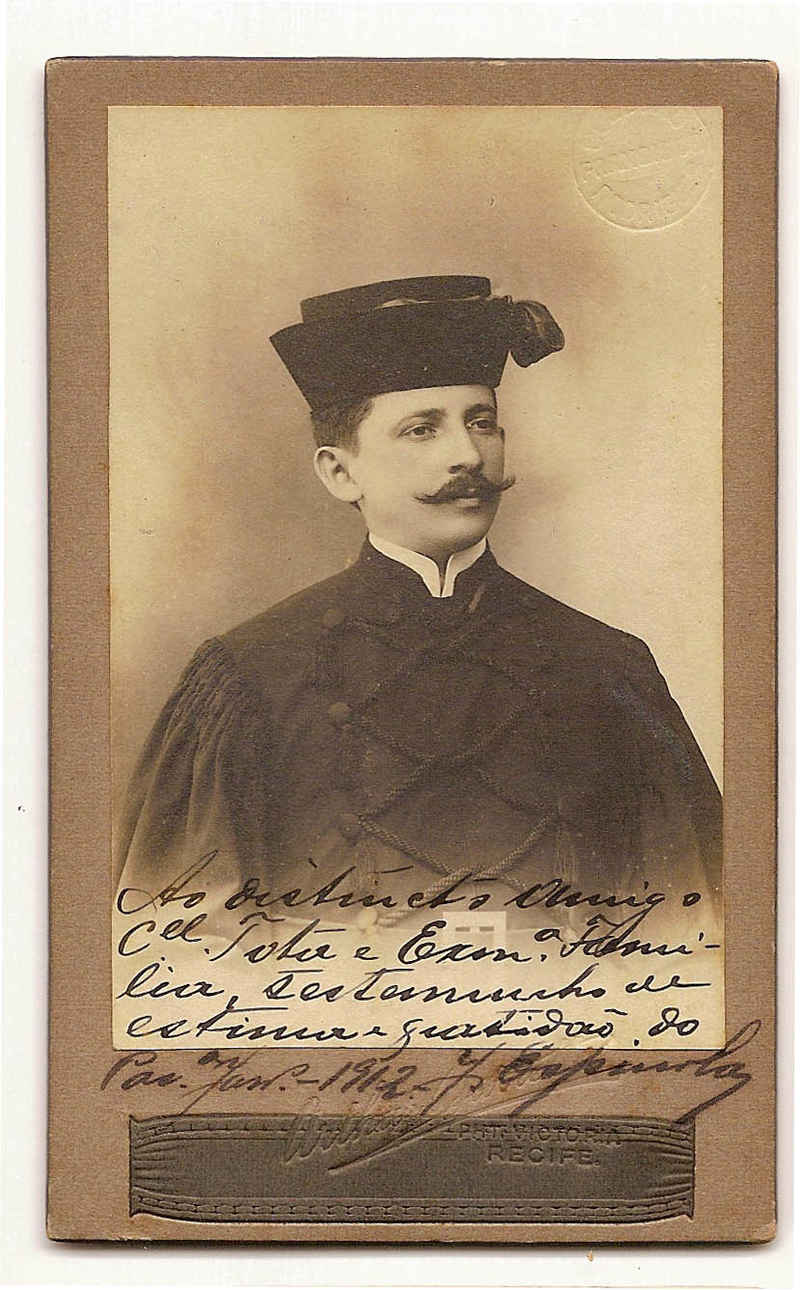 Ao distincto Amigo
Cel. Tota e Exmª. Fami-
lia, testemunho de
estima e gratidão do
Jan.º - 1912 - J. Espinola
PHT. VICTORIA
RECIFE.